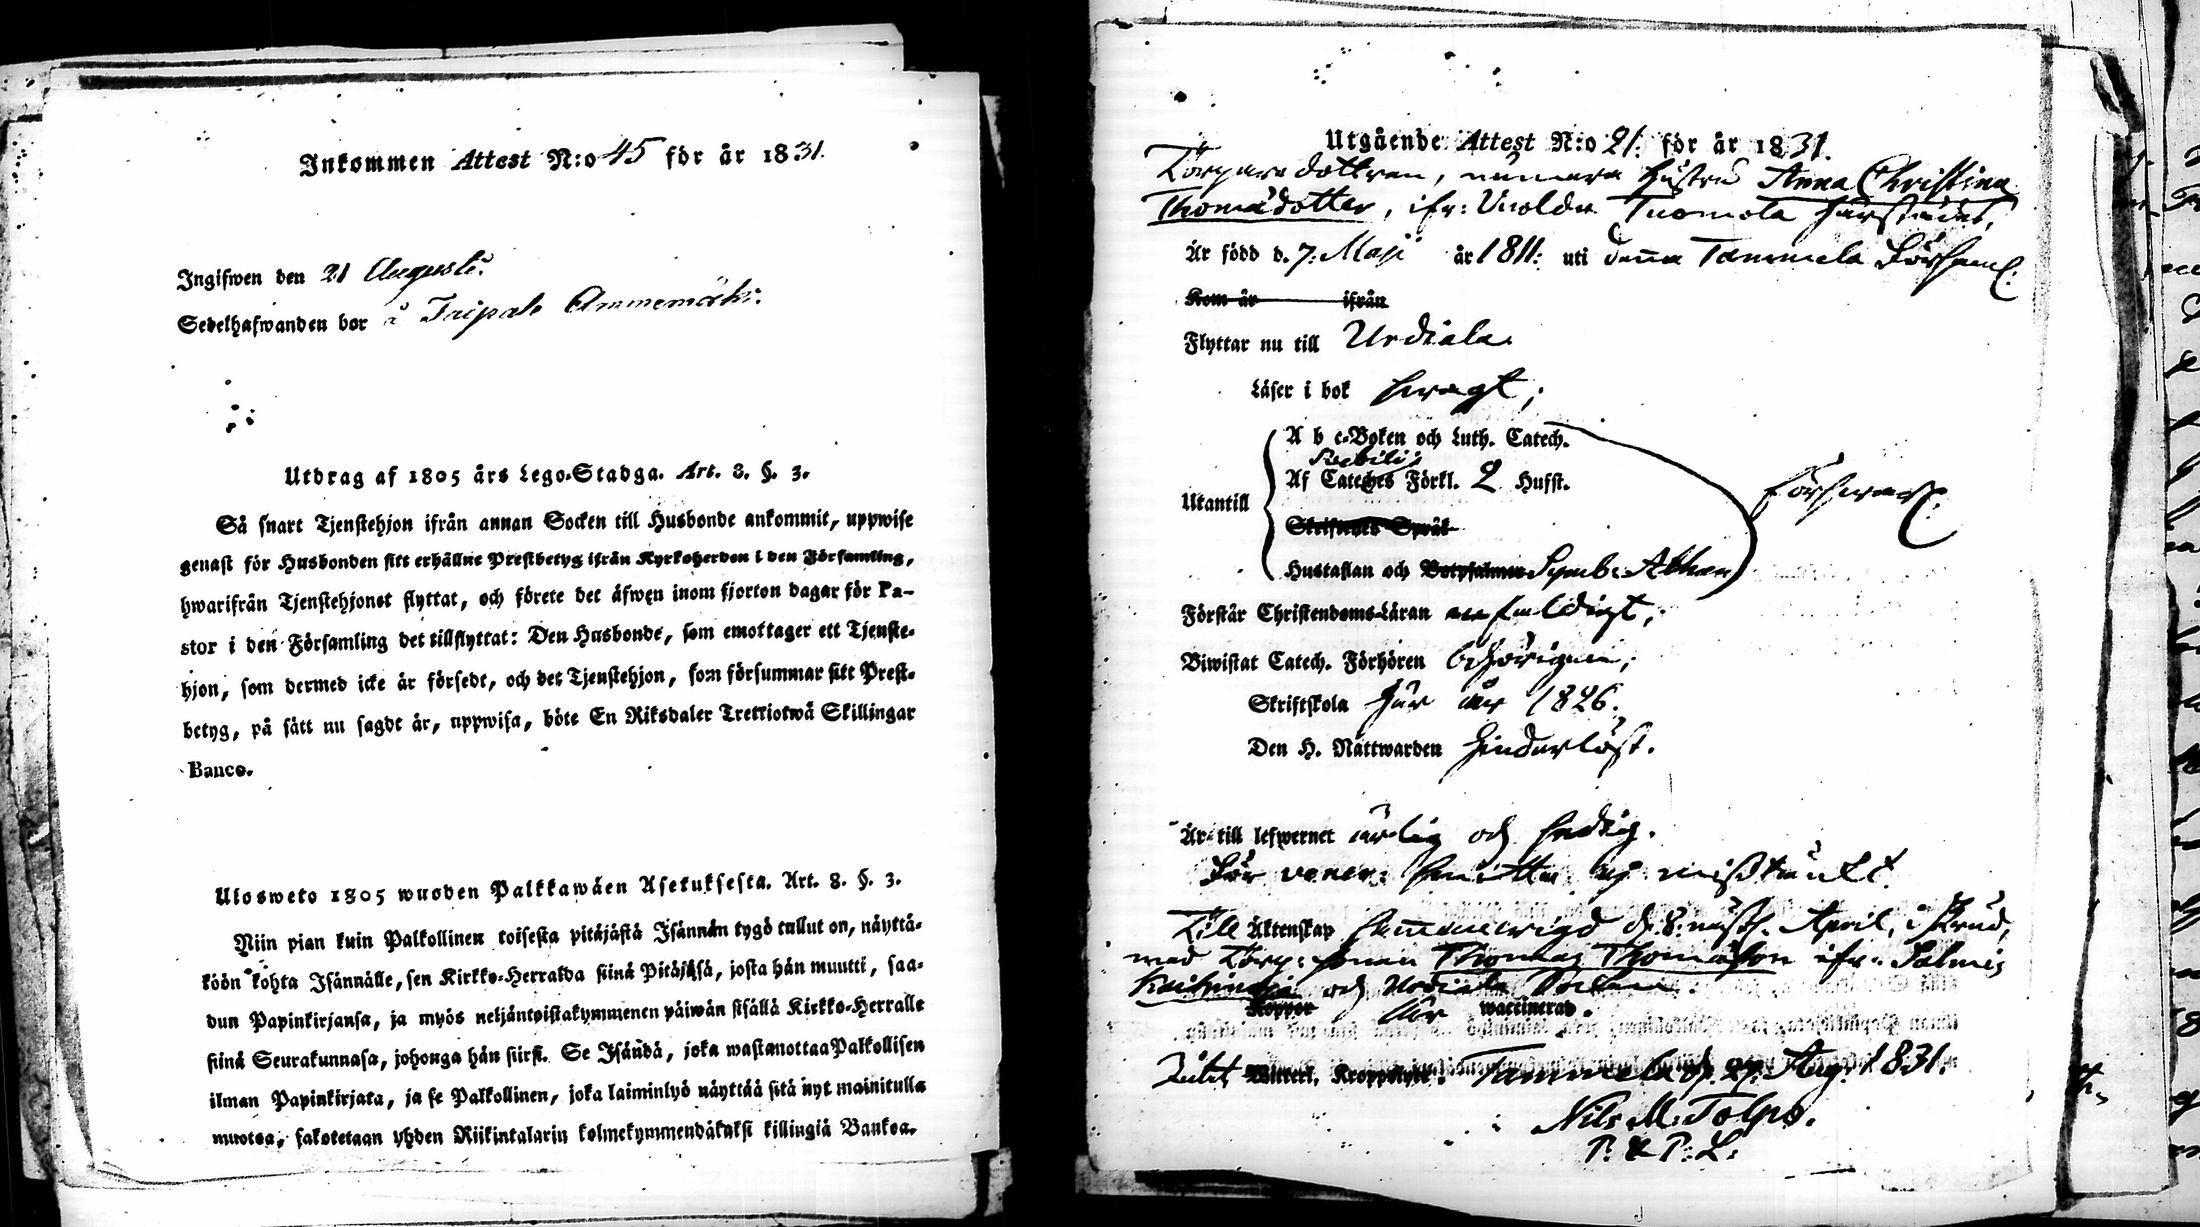 Inkommen Attest N:o 45 för år 1831.
Ingifwen den 21 Augusti.
Sedelhafwanden bor å
Utdrag af 1805 års Lego-Stadga. Art. 8. §. 3.
Så snart Tjenstehjon ifrån annan Socken till Husbonde ankommit, uppwise
genast för Husbonden sitt erhållne Prestbetyg ifrån Kyrkoherden i den Församling,
hwarifrån Tjenstehjonet flyttat, och förete det äfwen inom fjorton dagar för Pa-
stor i den Församling det tillflyttat: Den Husbonde, som emottager ett Tjenste-
hjon, som dermed icke är försedt, och det Tjenstehjon, som försummar sitt Prest-
betyg, på sätt nu sagdt är, uppwisa, böte En Riksdaler Trettiotwå Skillingar
Banco.
Ulosweto 1805 wuoden Palkkawäen Asetuksesta. Art. 8. §. 3.
Niin pian kuin Palkollinen toisesta pitäjästä Isännän tygö tullut on, näyttä-
köön kohta Isännälle, sen Kirkko-Herralda siinä Pitäjäsä, josta hän muutti, saa-
dun Papinkirjansa, ja myös neljäntoistakymmenen päiwän sisällä Kirkko-Herralle
siinä Seurakunnasa, johonga hän siirsi. Se Isändä, joka wastanottaa Palkollisen
ilman Papinkirjata, ja se Palkollinen, joka laiminlyö näyttää sitä nyt mainitulla
muotoa, sakotetaan yhden Riikintalarin kolmekymmendäkaksi killingiä Bankoa.
Utgående Attest N:o 21. för år 1831.
Torparedottren, numera Hustru Anna Christina
Thomädotter, ifr: Tuomola härstädes,
Är född d. 7. Maji år 1811: uti denna Tammela Församl:
Kom år ifrån
Flyttar nu till Urdiala
Läser i bok swagt;
Utantill
A b c-Boken och Luth. Catech.
Svebilii
Af Cateches Förkl. 2 Hufst.
Skriftens Språk
Hustaflan och Botpsalmer Symb: Athan
Försvarl.
Förstår Christendoms-Läran enfaldigt;
Biwistat Catech. Förhören behörigen;
Skriftskola här år 1826.
Den H. Nattwarden hinderlöst.
Är till lefwernet ärlig och fredig.
För vener: smitta ej misstänkt.
Till Äktenskap sammanvigd d. 8: April,
med Torp: sonen Thomas Thomasson ifr:
och Urdiala Socken.
Koppor waccinerad.
Kroppslyte. Tammela d. 27. Aug. 1831.
Nils M: Tolpo.
P: & P: L: